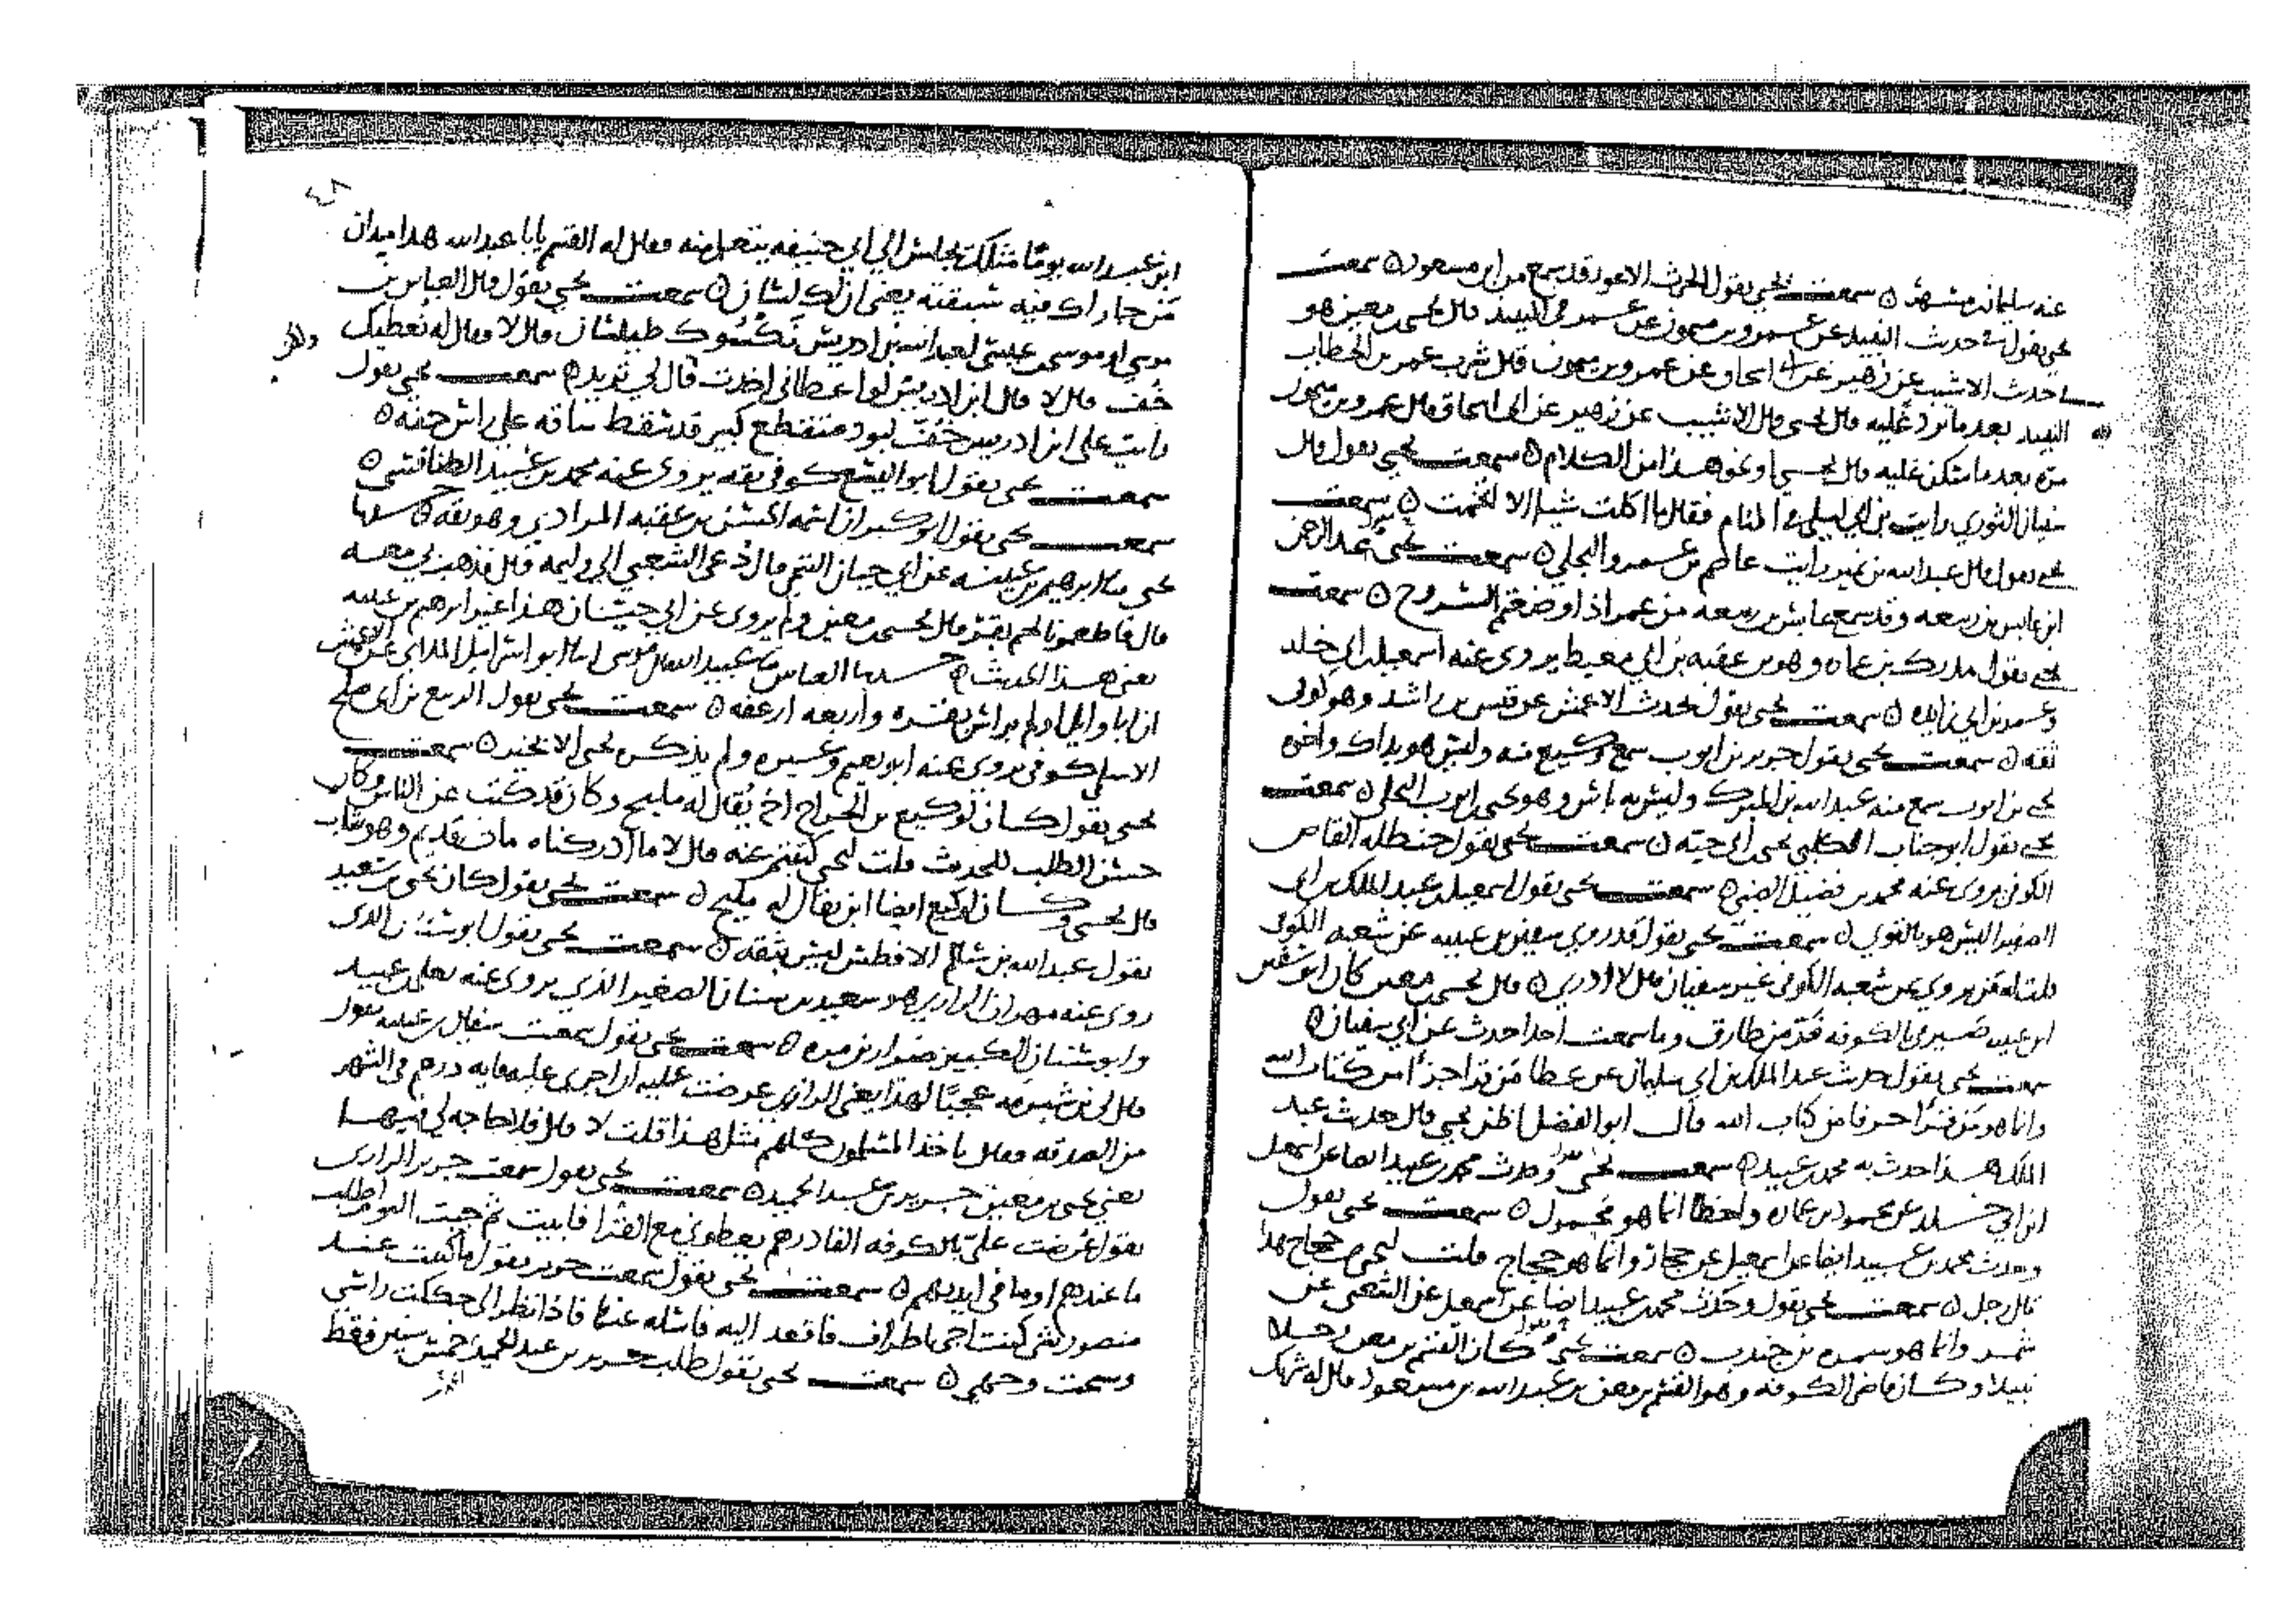 عنه سليمان بن مسهر ٥ سمعت يحيى يقول الحرث الاعور قد سمع من ابن مسعود ٥ سمعت
يحيى يقول في حديث النبيذ عن عمرو بن ميمون عن عمر في النبيذ قال يحيى بن معين هو
حدث الاشيب عن زهير عن ابي اسحاق عن عمرو بن ميمون قال شرب عمر بن الخطاب
النبيذ بعد ما برد عليه قال يحيى قال الاشيب عن زهير عن ابي اسحاق قال عمرو بن ميمون
مرة بعد ما سكن عليه قال يحيى او نحو هذا من الكلام ٥ سمعت يحيى يقول قال
سفيان الثوري رايت بن ابي ليلى في المنام فقال ما اكلت شيا الا اتخمت ٥ سمعت
يحيى يقول قال عبد الله بن نمير رايت عاصم بن عمرو البجلي ٥ سمعت يحيى عبد الرحمن
ابن عابس بن ربيعه وقد سمع عابس بن ربيعه من عمر اذا وضعتم السروج ٥ سمعت
يحيى يقول مدرك بن عماره وهو بن عقبه بن ابي معيط يروي عنه اسمعيل بن ابي خلد
وعمر بن ابي زايده ٥ سمعت يحيى يقول يحدث الاعمش عن قيس بن راشد وهو كوفي
ثقه ٥ سمعت يحيى يقول جرير بن ايوب سمع وكيع منه وليس هو بذاك واخوه
يحيى بن ايوب سمع منه عبد الله بن المبرك وليس به باس وهو يحيى بن ايوب البجلي ٥ سمعت
يحيى يقول ابو جناب الكلبي يحيى بن ابي حيه ٥ سمعت يحيى يقول حنظله القاص
الكوفي يروي عنه محمد بن فضيل الضبي ٥ سمعت يحيى يقول اسمعيل بن عبد الملك بن ابي
الصفير اليس هو بالقوي ٥ سمعت يحيى يقول قد روى سفين بن عيينه عن شعبه الكوفي
قلت له فمن يروي عن شعبه الكوفي غير سفيان قال لا ادري ٥ قال يحيى بن معين كان ابو سفين
ابن عيينه صيرفي بالكوفه وما سمعت احدا حدث عن ابي سفيان ٥
سمعت يحيى يقول حدث عبد الملك بن ابي سليمان عن عطا من قرا جزءا من كتاب الله
وانما هو من قرا حرفا من كتاب الله قال ابو الفضل اظن يحيى قال حدث عبد
الملك هذا حدث به محمد بن عبيد ٥ سمعت يحيى يقول وحدث محمد بن عبيد ايضا عن اسمعيل
ابن ابي خلد عن محمود بن عماره واخطا انما هو مخمول ٥ سمعت يحيى يقول
وحدث محمد بن عبيد ايضا عن اسمعيل عن حجاز وانما هو حجاج قلت ليحيى من حجاج هذا
قال رجل ٥ سمعت يحيى يقول وحدث محمد بن عبيد ايضا عن اسمعيل عن الشعبي عن
شمر وانما هو سمره بن جندب ٥ سمعت يحيى يقول كان القسم بن معن رجلا
نبيلا وكان قاضي الكوفه وهو القسم بن معن بن عبد الله بن مسعود قال له شريك
ابن عبد الله يوما مثلك يجلس الى ابي حنيفه يتعلم منه فقال له القسم يابا عبد الله هذا ميدان
من جاراك فيه سبقته يعني ان لك لسان ٥ سمعت يحيى يقول قال العباس بن
موسى او موسى بن عيسى لعبد الله بن ادريس نكسوك طيلسان قال لا فقال له نعطيك
خف قال لا قال ابن ادريس لو اعطاني اخذت قال يحيى يقول
رايت على ابن ادريس خف لبود متقطع كبير قد سقط ساقه على راس خفه ٥
سمعت يحيى يقول ابو اليسع كوفي ثقه يروي عنه محمد بن عبيد الطنافسي ٥
سمعت يحيى يقول ابو كبران اسمه الحسن بن عقبه المرادي وهو ثقه ٥ حدثنا
يحيى ثنا ابرهيم بن عيينه عن ابي حيان التيمي قال دعي الشعبي الى وليمه قال فذهب بي معه
قال فاطعمونا لحم بقر قال يحيى بن معين ولم يروي عن ابي حيان هذا غير ابرهيم بن عيينه
يعني هذا الحديث ٥ حدثنا العباس ثنا عبيد الله بن موسى انا ابو اسرايل الملائي عن الاعمش
ان ابا وايل اولم براس بقره واربعه ارغفه ٥ سمعت يحيى يقول الربيع بن ابي صلح
الاسلمي كوفي يروي عنه ابو نعيم وغيره ولم يذكره يحيى الا بخير ٥ سمعت
يحيى يقول كان لوكيع بن الجراح اخ يقال له مليح وكان قد كتب عن الناس وكان
حسن الطلب للحديث قلت ليحيى كتبتم عنه قال لا ما ادركناه مات قديم وهو شاب
قال يحيى وكان لوكيع ايضا ابن يقال له مليح ٥ سمعت يحيى يقول كان يحيى بن سعيد
يقول عبد الله بن سلم الافطس ليس بثقه ٥ سمعت يحيى يقول ابو سنان الذي
روى عنه مهران الرازي هو سعيد بن سنان الصغير الذي يروي عنه يعلى بن عبيد
وابو سنان الكبير ضرار بن مره ٥ سمعت يحيى يقول سمعت سفين بن عيينه يقول
قال لي بن شبرمه عجبا لهذا يعني الرازي عرضت عليه ان اجري عليه مايه درهم في الشهر
من الصدقه فقال ياخذ المسلمون كلهم مثل هذا قلت لا قال فلا حاجه لي فيها
يعني يحيى بن معين جرير بن عبد الحميد ٥ سمعت يحيى يقول سمعت جرير الرازي
يقول عرضت علي بالكوفه الفا درهم يعطوني مع القرا فابيت ثم جيت اليوم اطلب
ما عندهم او ما في ايديهم ٥ سمعت يحيى يقول سمعت جرير يقول ما كنت عند
منصور كنت اجي باطراف فاقعد اليه فاسله عنها فاذا نظر الي حككت راسي
وسكت وحملي ٥ سمعت يحيى يقول طلب جرير بن عبد الحميد خمس سنين فقط